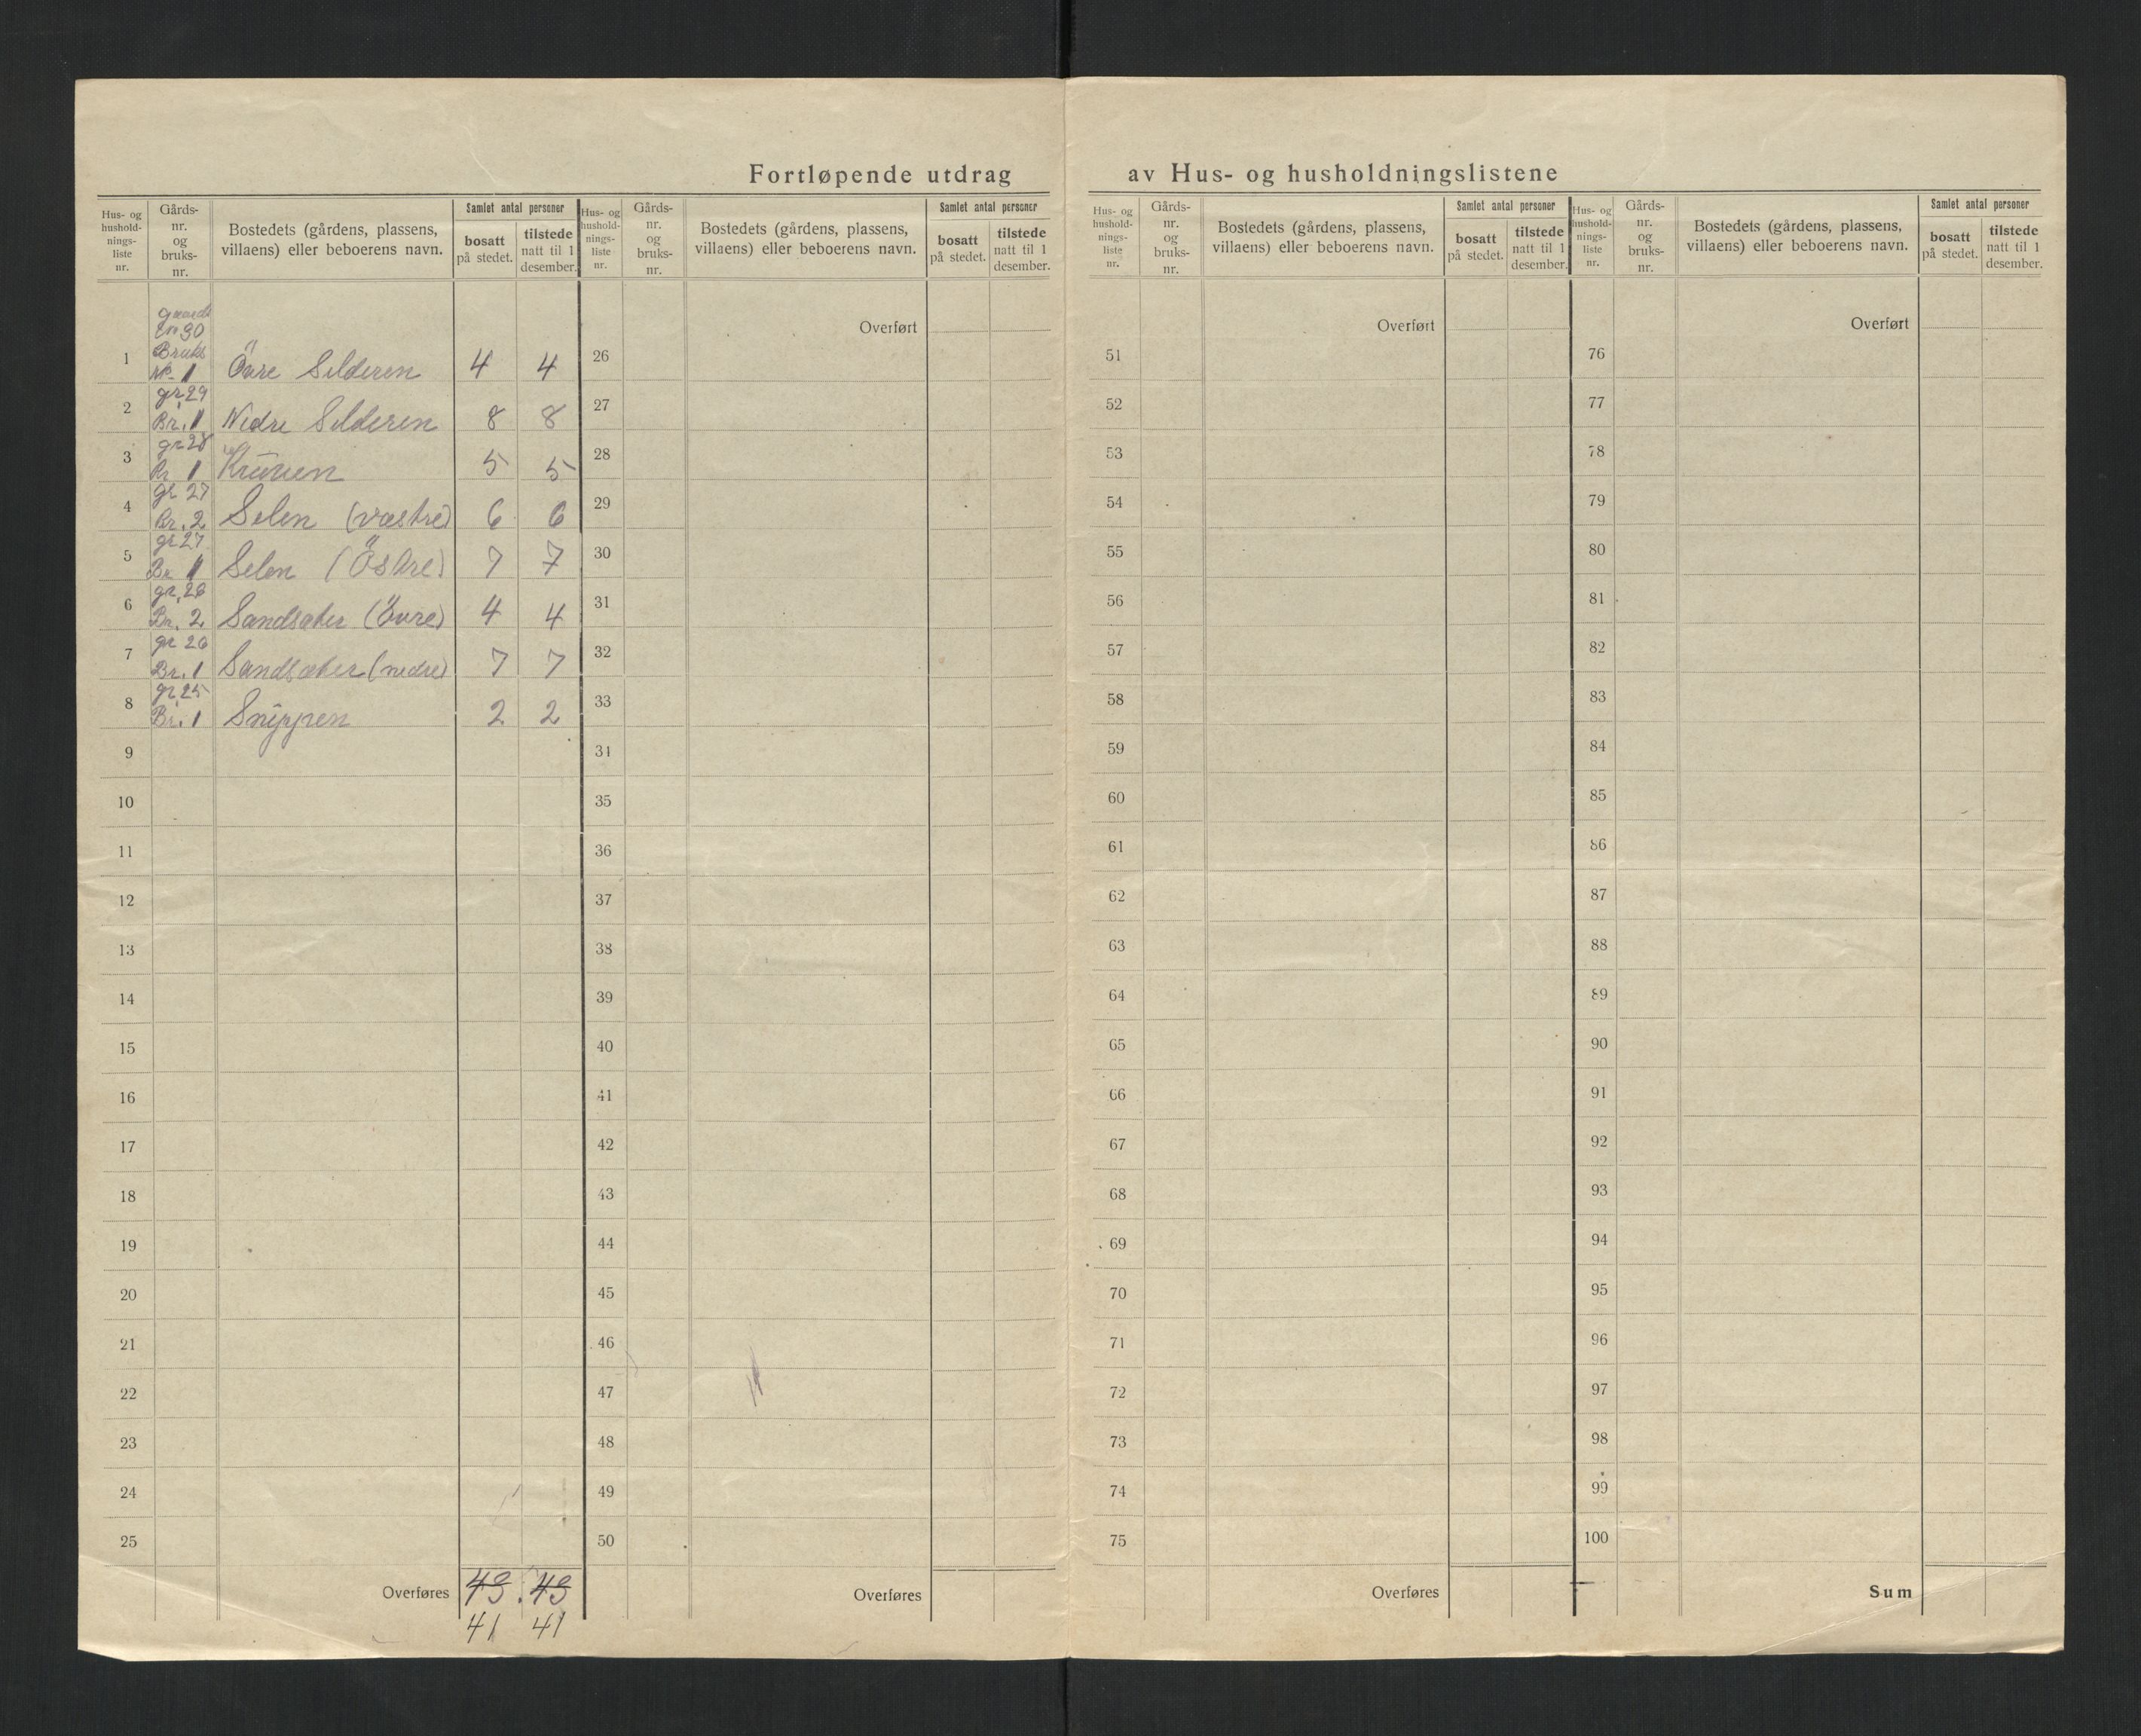 Fortløpende utdrag av Hus- og husholdningslistene
Hus- og hushold-nings-liste nr.
Gårds-nr. og bruks-nr.
Bostedets (gårdens, plassens, villaens) eller beboerens navn.
Samlet antal personer
bosatt på stedet.
tilstede natt til 1 desember.
Hus- og hushold-nings-liste nr.
Gårds-nr. og bruks-nr.
Bostedets (gårdens, plassens, villaens) eller beboerens navn.
Samlet antal personer
bosatt på stedet.
tilstede natt til 1 desember.
Hus- og hushold-nings-liste nr.
Gårds-nr. og bruks-nr.
Bostedets (gårdens, plassens, villaens) eller beboerens navn.
Samlet antal personer
bosatt på stedet.
tilstede natt til 1 desember.
Hus- og hushold-nings-liste nr.
Gårds-nr. og bruks-nr.
Bostedets (gårdens, plassens, villaens) eller beboerens navn.
Samlet antal personer
bosatt på stedet.
tilstede natt til 1 desember.
30
Bruks
1 No 1 Övre Selderen 4 4
gr 29
2 Br. 1 Nedre Selderen 8 8
gr 28
3 Br 1 Kruven 5 5
gr 27
4 Br. 2 Selen (væstre) 6 6
gr 27
5 Br 1 Selen (Östre) 7 7
gr. 26
6 Br. 2 Sandsaker (Övre) 4 4
gr 26
7 Br. 1 Sandsaker (nedre) 7 7
gr 25
8 Br. 1 Snippen 2 2
9
10
11
12
13
14
15
16
17
18
19
20
21
22
23
24
25
Overføres 43 43
41 41
Overført
26
27
28
29
30
31
32
33
34
35
36
37
38
39
40
41
42
43
44
45
46
47
48
49
50
Overføres
Overført
51
52
53
54
55
56
57
58
59
60
61
62
63
64
65
66
67
68
69
70
71
72
73
74
75
Overføres
Overført
76
77
78
79
80
81
82
83
84
85
86
87
88
89
90
91
92
93
94
95
96
97
98
99
100
Sum